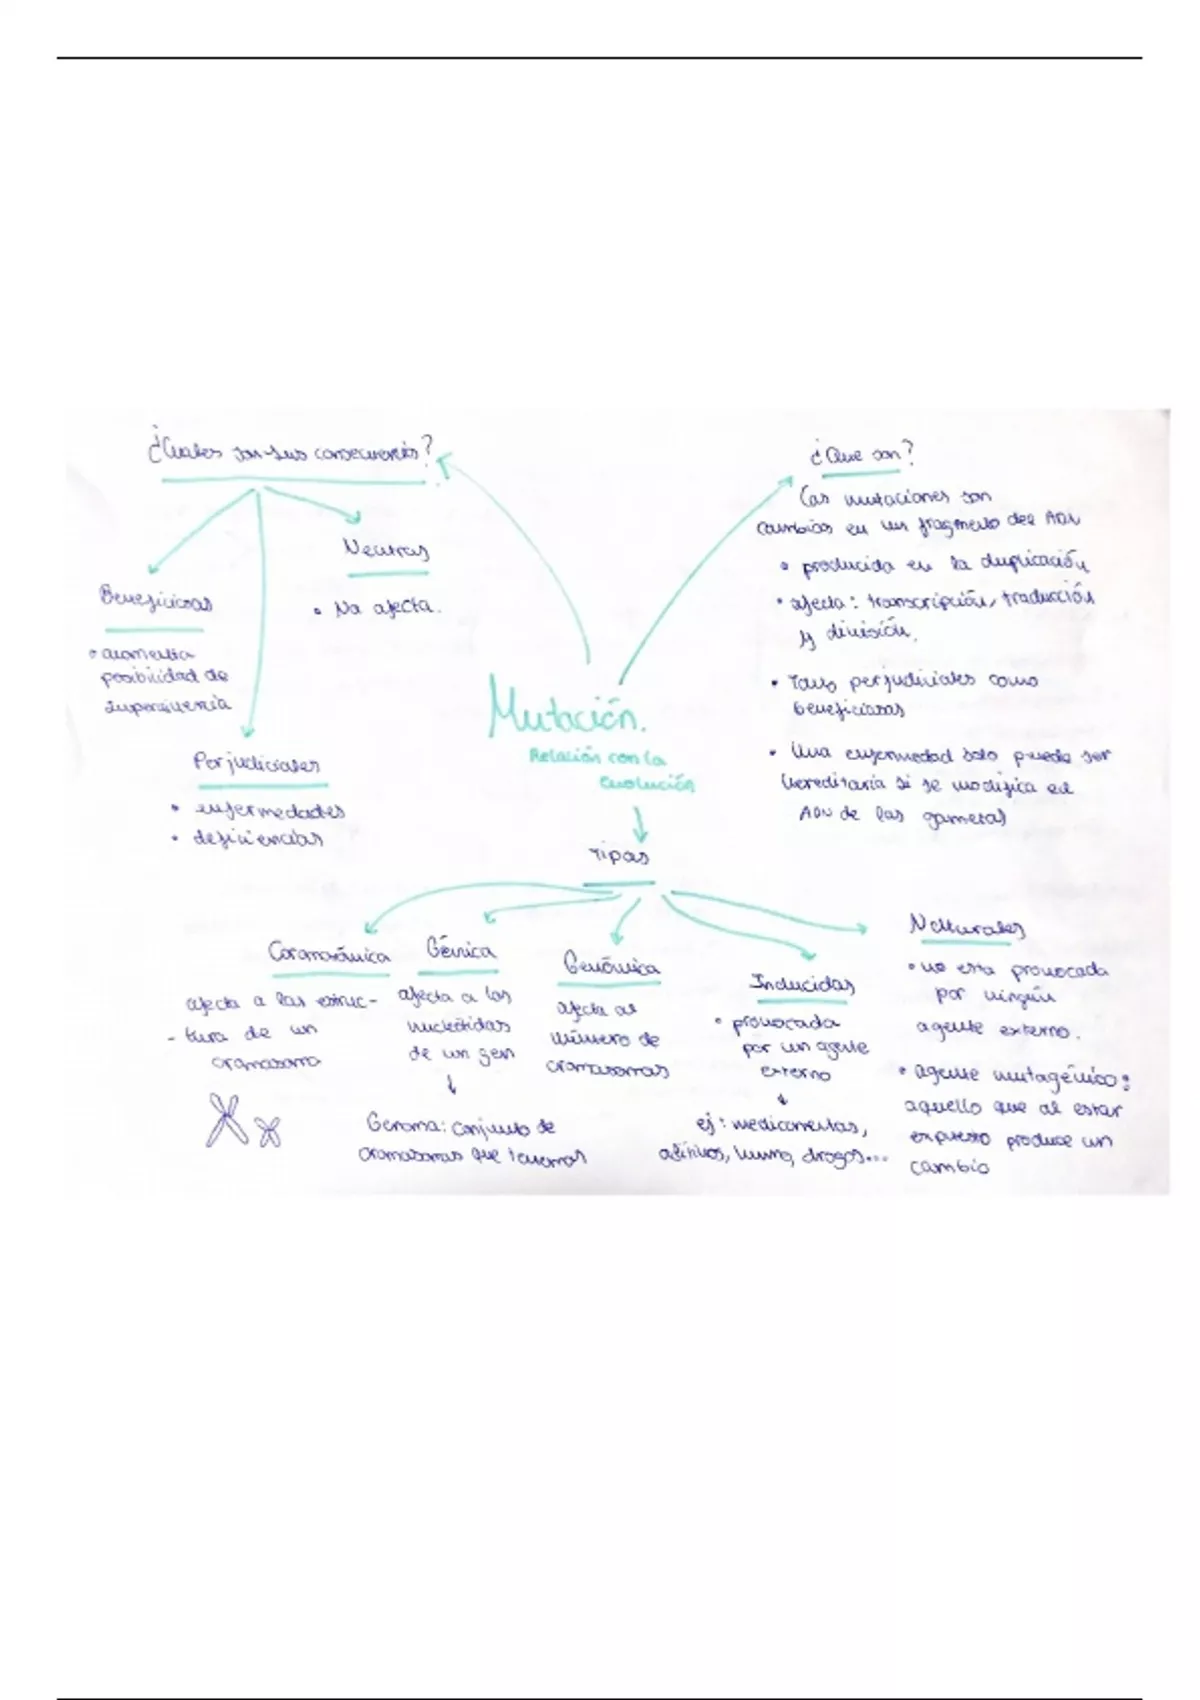 ¿Cuales son sus consecuencias?
Neutras
• No afecta.
Beneficiosas
• aumenta
posibilidad de
supervivencia
Perjudiciales
• enfermedades
• deficiencias
Mutación.
Relación con la
evolución
¿Que son?
Las mutaciones son
cambios en un fragmento del ADN
• producida en la duplicación
• afecta: transcripción, traducción
y división.
• Tanto perjudiciales como
beneficiosas
• Una enfermedad solo puede ser
hereditaria si se modifica el
ADN de las gametas
Tipos
Cromosómica
afecta a las estruc-
-tura de un
cromosoma
Génica
afecta a los
nucleótidos
de un gen
Genoma: conjunto de
cromosomas que tenemos
Genómica
afecta al
número de
cromosomas
Inducidas
• provocada
por un agente
externo
ej: medicamentos,
aditivos, humo, drogas...
Naturales
• no esta provocada
por ningún
agente externo.
• agente mutagénico:
aquello que al estar
expuesto produce un
cambio